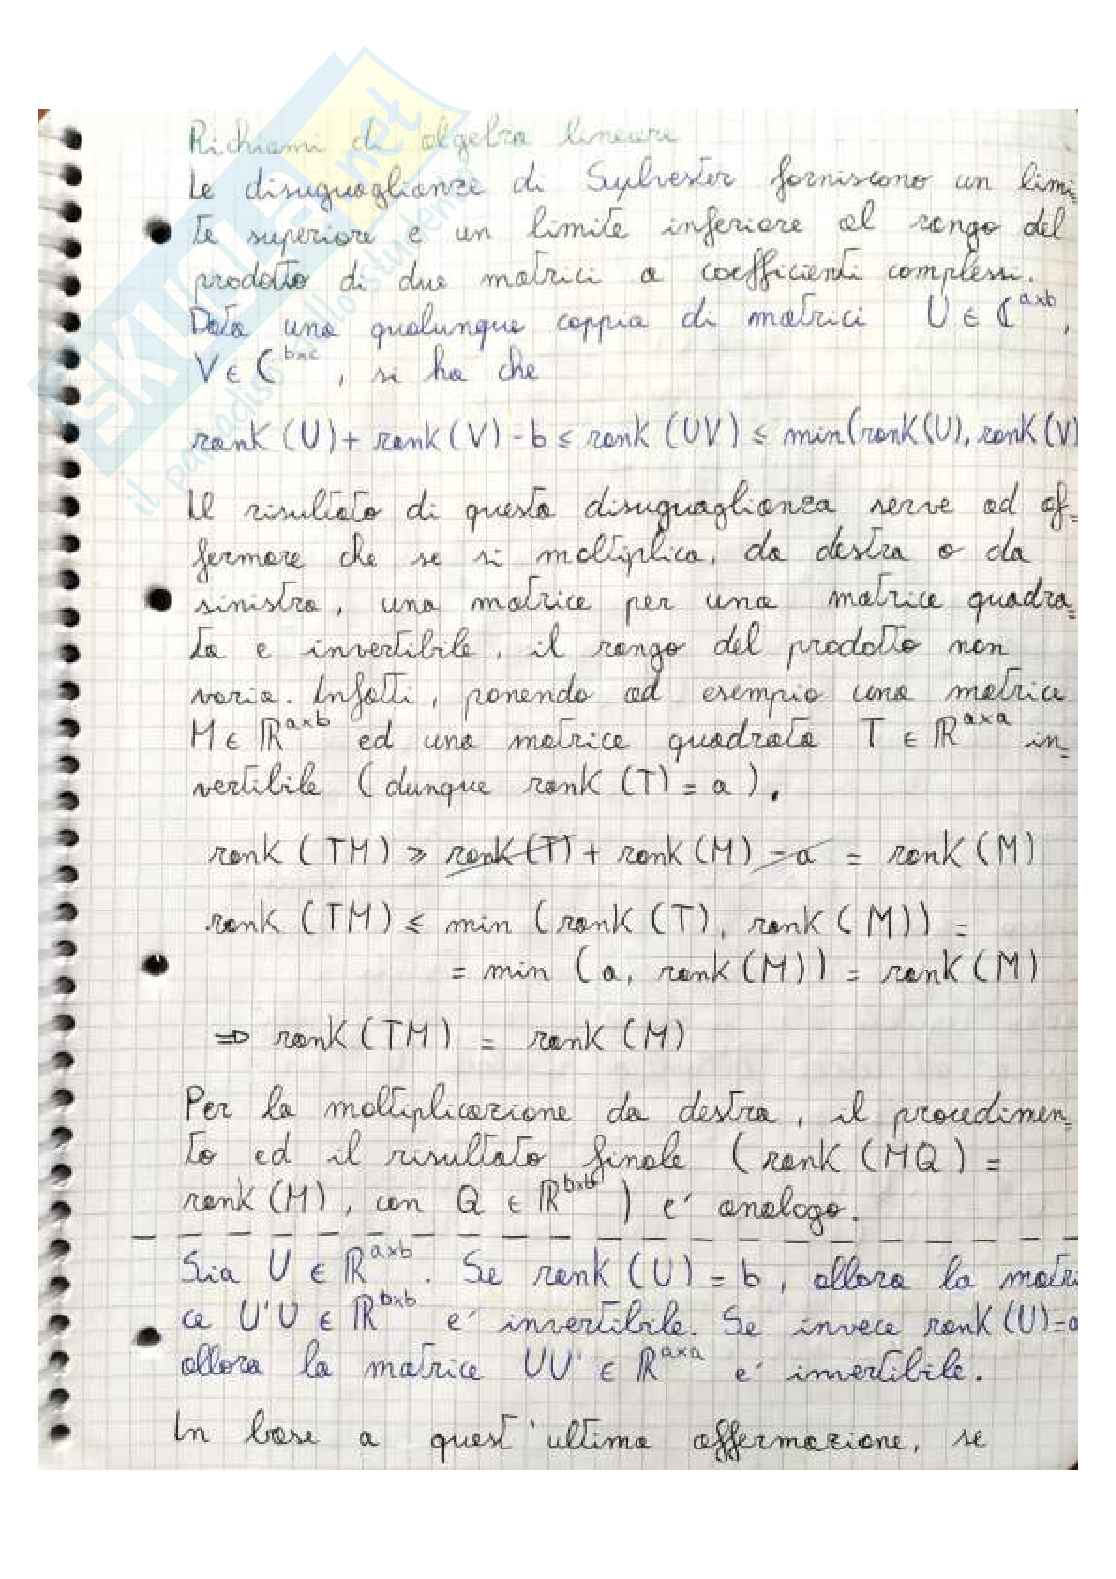 Richiami di algebra lineare
Le disuguaglianze di Sylvester forniscono un limi-
te superiore e un limite inferiore al rango del
prodotto di due matrici a coefficienti complessi.
Data una qualunque coppia di matrici U ∈ ℂ^{a×b},
V ∈ ℂ^{b×c}, si ha che
rank (U) + rank (V) - b ≤ rank (UV) ≤ min(rank(U), rank(V)
Il risultato di questa disuguaglianza serve ad af-
fermare che se si moltiplica, da destra o da
sinistra, una matrice per una matrice quadra-
ta e invertibile, il rango del prodotto non
varia. Infatti, ponendo ad esempio una matrice
M ∈ ℝ^{a×b} ed una matrice quadrata T ∈ ℝ^{a×a} in-
vertibile (dunque rank (T) = a),
rank (TM) ≥ rank (T) + rank (M) - a = rank (M)
rank (TM) ≤ min (rank (T), rank (M)) =
= min (a, rank (M)) = rank (M)
⇒ rank (TM) = rank (M)
Per la moltiplicazione da destra, il procedimen-
to ed il risultato finale (rank (MQ) =
rank (M), con Q ∈ ℝ^{b×b}) e' analogo.
Sia U ∈ ℝ^{a×b}. Se rank (U) = b, allora la matri
ce U'U ∈ ℝ^{b×b} e' invertibile. Se invece rank (U)=a
allora la matrice UU' ∈ ℝ^{a×a} e' invertibile.
In base a quest'ultima affermazione, se
SKUOLA.net
il paradiso dello studente